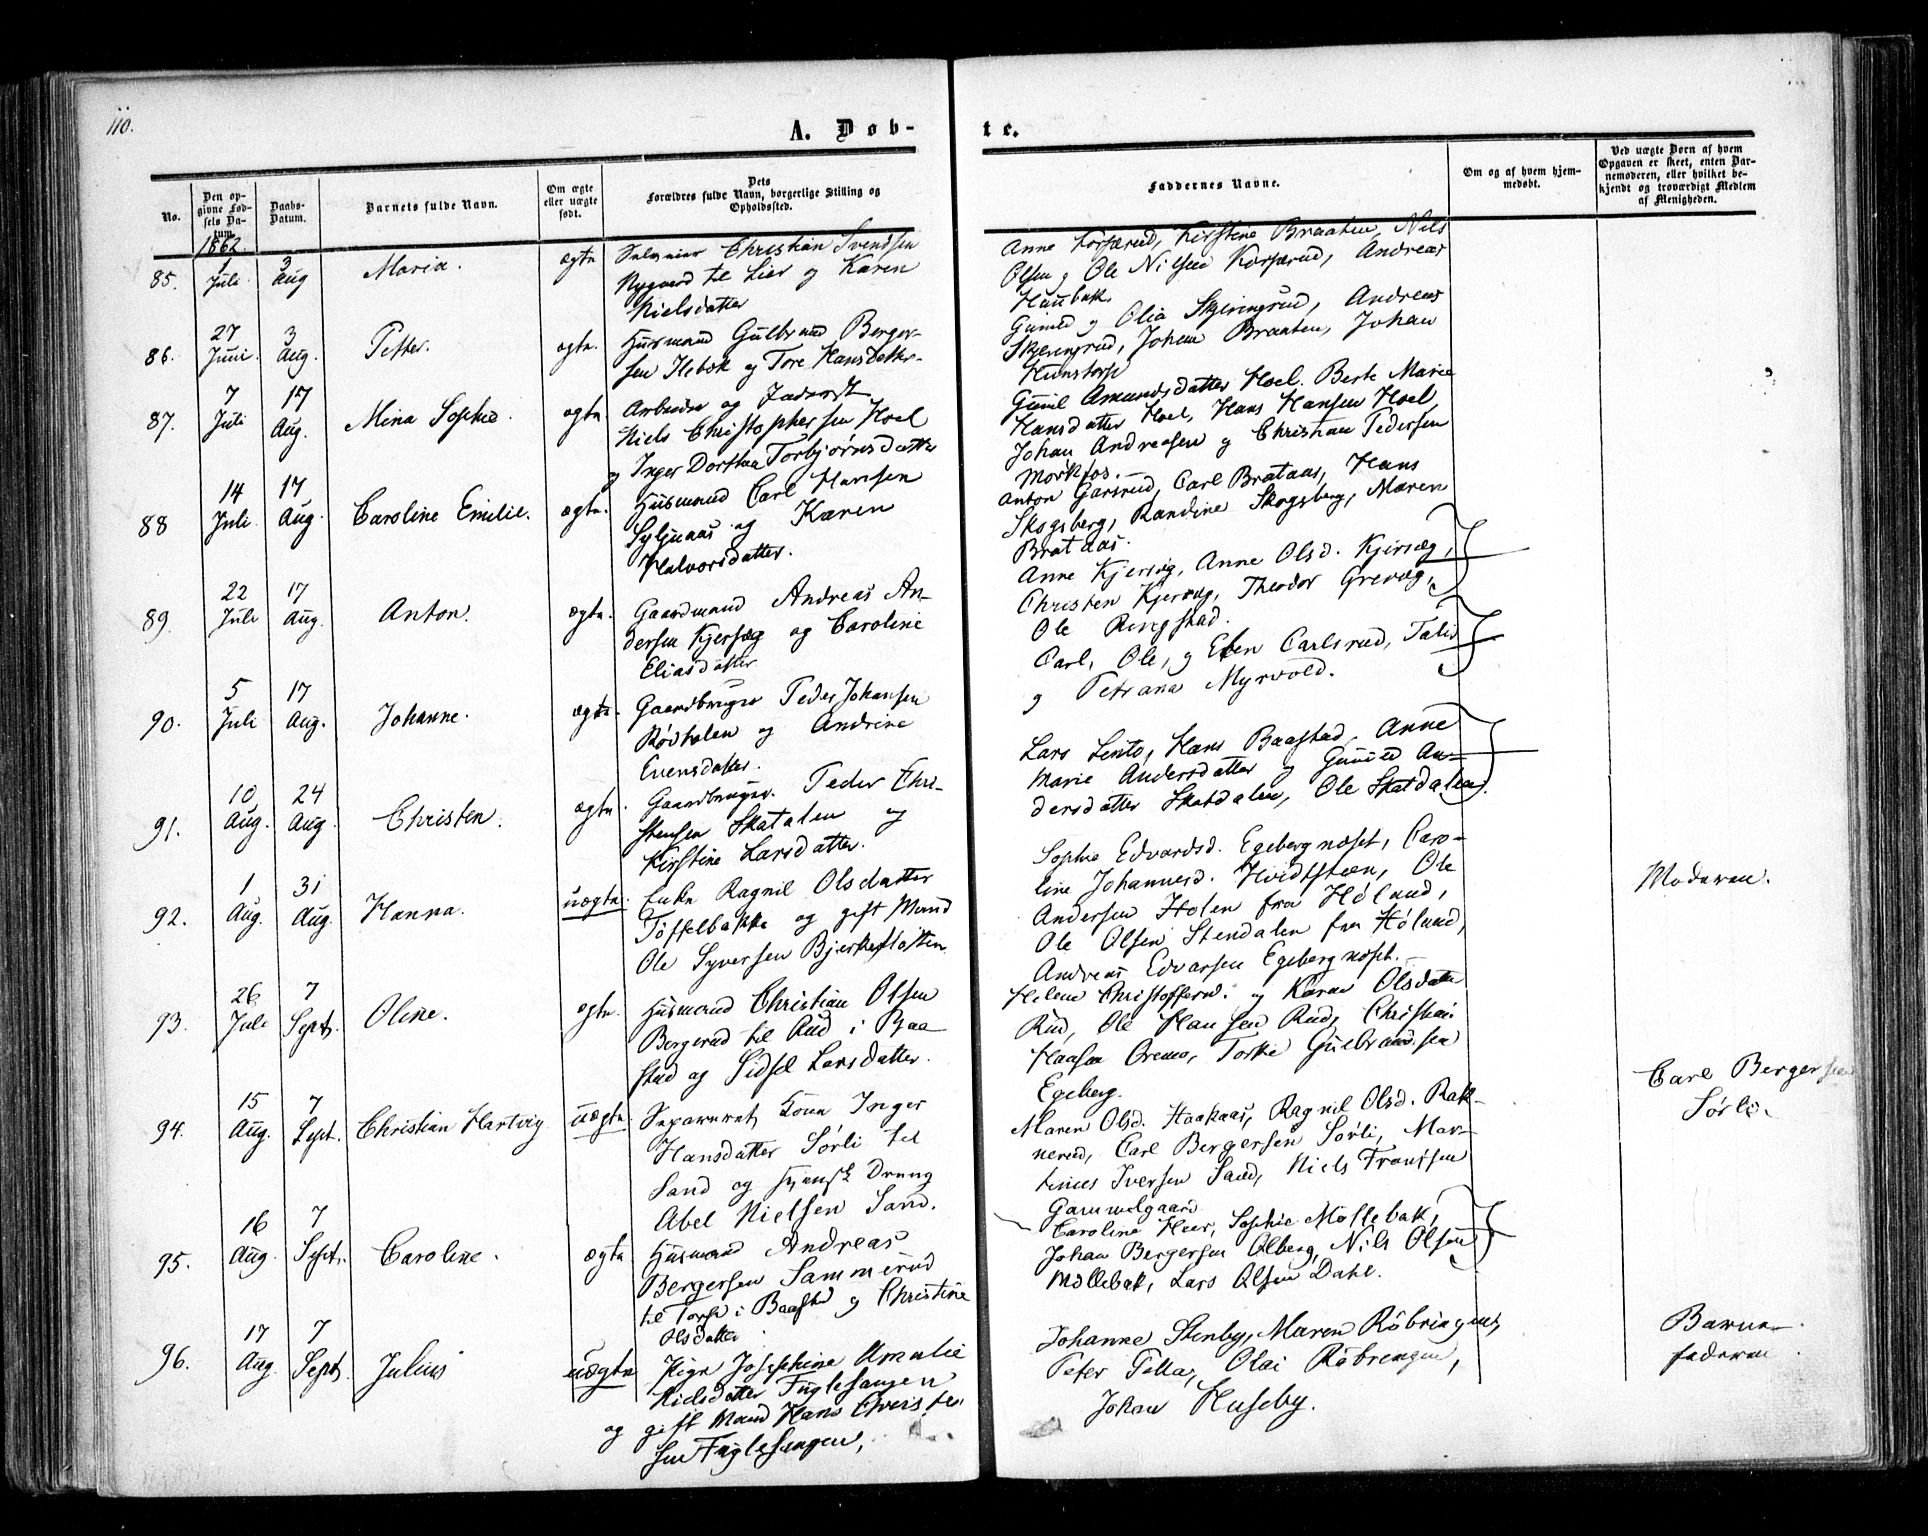 110.
A. Døb-
te.
No.
Den op-
givne Fød-
sels Da-
tum.
Daabs-
Datum.
Barnets fulde Navn.
Om ægte
eller uægte
født.
Dets
Forældres fulde Navn, borgerlige Stilling og
Opholdssted.
Faddernes Navne.
Om og af hvem hjem-
medøbt.
Ved uægte Børn af hvem
Opgaven er skeet, enten Bar-
nemoderen, eller hvilket be-
kjendt og troværdigt Medlem
af Menigheden.
1862.
85.
1
Juli
3
Aug
Maria.
ægte
Christian Svendsen
Nygaard til Lier og Karen
Nielsdatter
Anne Korsærud, Kirstine Braaten, Nils
Olsen og Ole Nilsen Korsærud, Andreas
Haubak
86.
27
Juni.
3
Aug.
Petter.
ægte.
Husmand Gulbrand Berger-
sen Ilebæk og Tore Hansdatter.
Gunild og Olia Skjeringrud, Andreas
Skjeringrud, Johan Braaten, Johan
87.
7
Juli
17
Aug.
Mina Sophie.
ægte
Arbeider og Inderst
Niels Christophersen Hoel
og Inger Dorthea Torbjørnsdatter
Gunil Amundsdatter Hoel. Berte Marie
Hansdatter Hoel, Hans Hansen Hoel
Johan Andreasen og Christian Pedersen
Mørkfos.
88
14
Juli.
17
Aug.
Caroline Emilie.
ægte.
Husmand Carl Hansen
Syljuaas og Karen
Halvorsdatter.
Anton Garsrud, Carl Brataas, Hans
Skogsberg, Randine Skogsberg, Maren
Brataas.
89.
22
Juli
17
Aug.
Anton.
ægte.
Gaardmand Andreas An-
dersen Kjersæg og Caroline
Eliasdatter
Anne Kjersæg, Anne Olsd. Kjersæg,
Christen Kjersæg, Theodor Grevæg,
Ole Ringstad.
90.
5
Juli
17
Aug.
Johanne.
ægte.
Gaardbruger Peder Johansen
Rødholen og Andrine
Evensdatter.
Carl, Ole, og Even Carlsrud,
og Petrana Myrvold.
91.
10
Aug.
24
Aug.
Christen.
ægte.
Gaardbruger. Peder Chri-
stensen Skatalen og
Kirstine Larsdatter.
Lars Lento, Hans Baastad, Anne
Marie Andersdatter og Gunild An-
dersdatter Skatdalen, Ole Skatdalen.
92.
1
Aug.
31
Aug.
Hanna.
uægte.
Enke Ragnil Olsdatter
Tøffelbakke og gift Mand
Ole Syversen Bjerkeslotten
Sophie Edvardsd. Egebergnæset, Caro-
line Johannesd. Hvidtsteen, Ole
Andersen Holen fra Høland,
Ole Olsen Stendalen fra Høland,
Andreas Edvarsen Egebergnæset.
Moderen.
93.
26
Juli
7
Sept.
Oline.
ægte.
Husmand Christian Olsen
Bergerud til Rud i Baa-
stad og Sidsel Larsdatter.
Helene Christoffersd. og Karen Olsdatter
Rud, Ole Hansen Rud, Christian
Hansen Oremo, Torke Gulbrandsen
Egeberg.
94.
15
Aug.
7
Sept.
Christian Hartvig
uægte.
Separeret Kone Inger
Hansdatter Sørli til
Sand og svensk Dreng
Abel Nielsen Sand.
Maren Olsd. Haakaas, Ragnil Olsd. Rak-
nerud, Carl Bergersen Sørli, Mar-
tinus Iversen Sand, Niels Frantsen
Gammelgaard
Carl Bergersen
Sørli.
95.
16
Aug.
7
Sept.
Caroline.
ægte
Husmand Andreas
Bergersen Sammerud
til Torper i Baastad og Christine
Olsdatter
Caroline Heer, Sophie Møllebak,
Johan Bergersen Olberg, Nils Olsen
Møllebak, Lars Olsen Dahl.
96.
17
Aug.
7
Sept.
Julius
uægte
Pige Josephine Amalie
Nielsdatter Fuglesangen
og gift Mand Hans Christen
sen Fuglesangen,
Johanne Stenby, Maren Røbringen,
Peter Tella, Olai Røbrengen,
Johan Huseby.
Barne-
faderen.